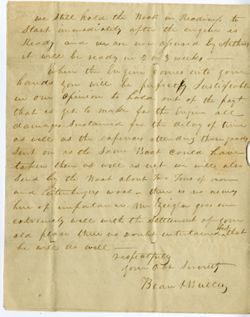 we still hold the Boat in Readiness to
Start immediately after the engine is
Ready and we are now assured by Nethers
it will be ready in 2 or 3 weeks
When the Engine comes into your
hands you will be perfectly Justifiable
in our opinion to hold out of the pay
that is yet to make for the Engine all
damages sustained in the delay of time
as well as the expenses attending those
Sent on as the same Boat could have
taken them as well as not we will also
Send by the Boat about Tons of iron
and no news
here of importance Mr Zeigler goes on
extremely well with the Settlement of your
old place there is no doubt entertained but
he will do well —
respectfully
your Obt Servts
Bean & Butler